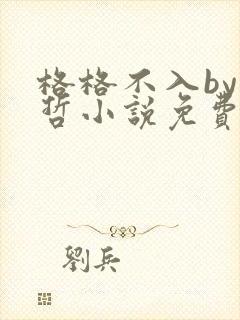 格格不入by
哲小說免費
劉兵